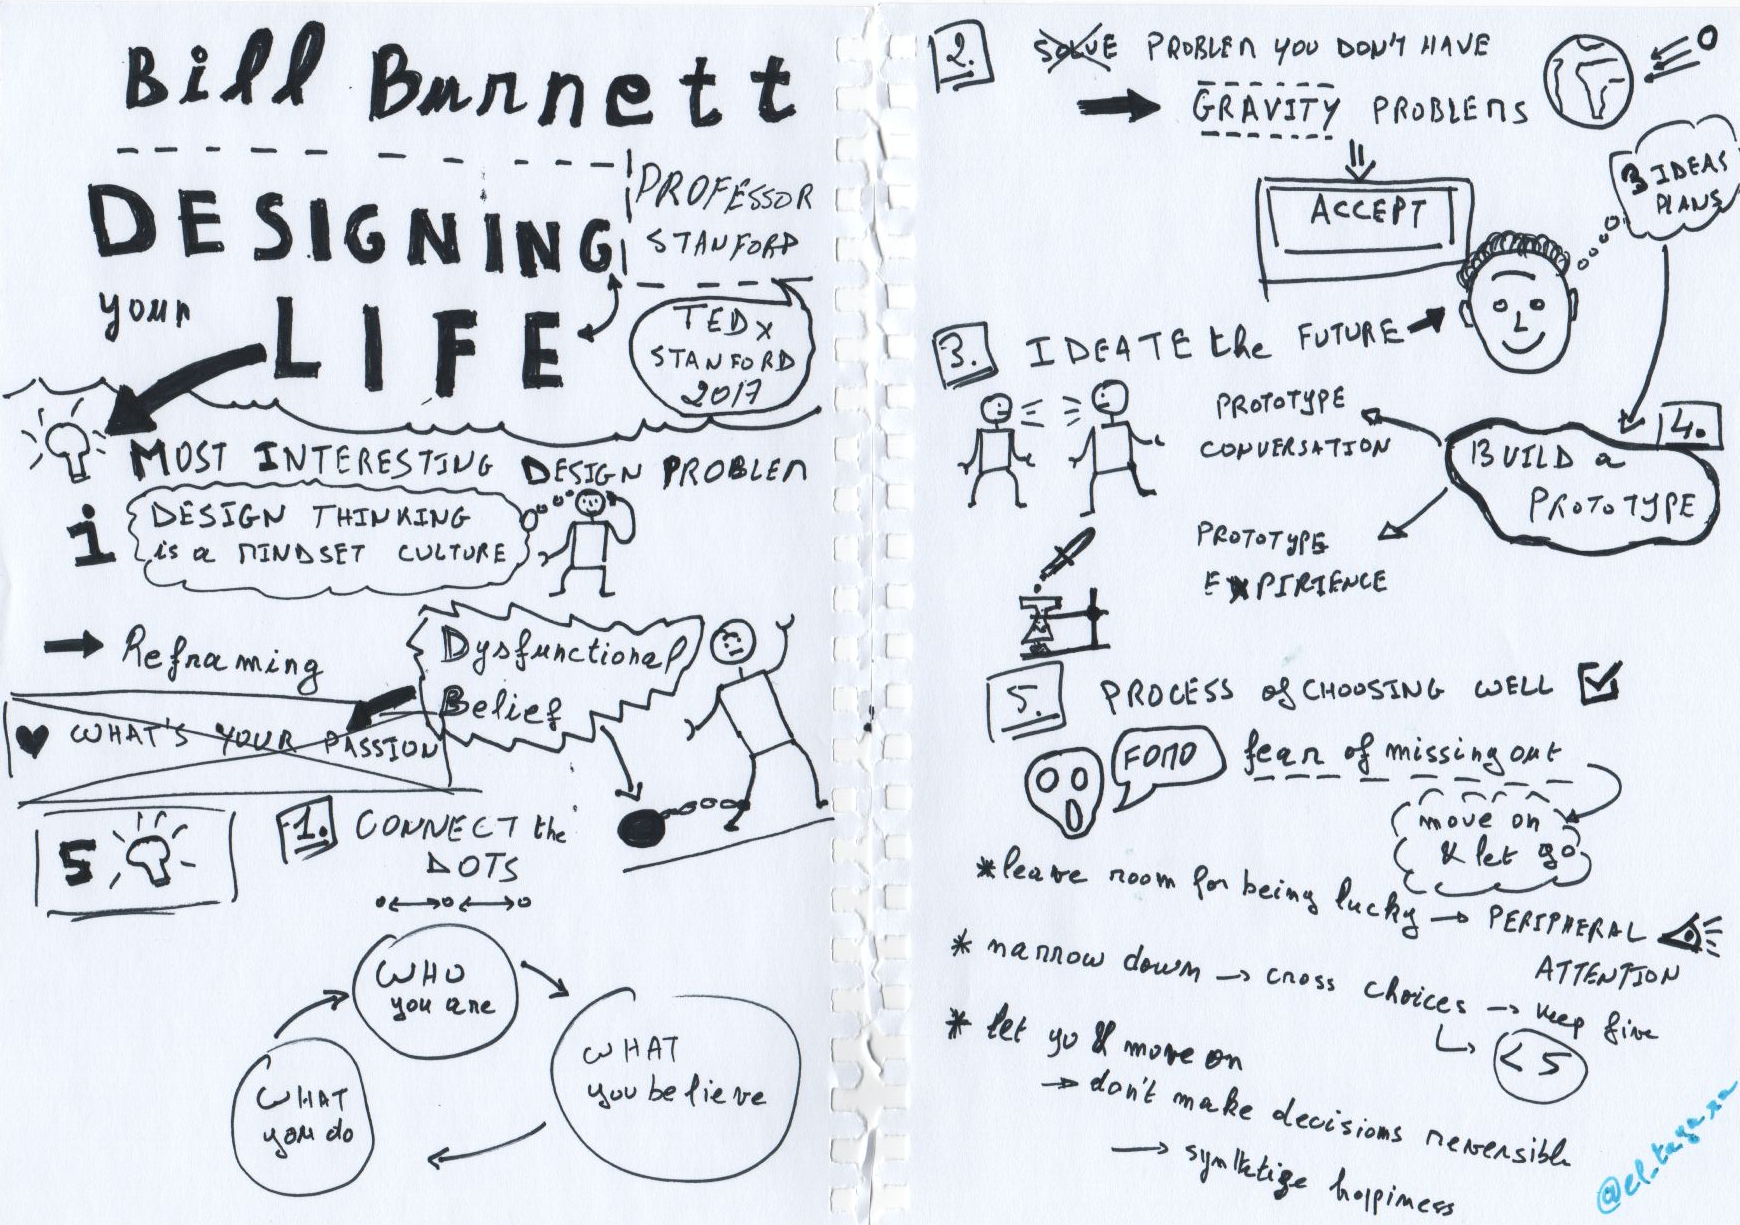 Bill Burnett
DESIGNING
your LIFE
PROFESSOR
STANFORD
TEDx
STANFORD
2017
MOST INTERESTING DESIGN PROBLEM
i
DESIGN THINKING
is a MINDSET CULTURE
Reframing
Dysfunctional
Belief
WHAT'S YOUR PASSION
5
1. CONNECT the
DOTS
WHO
you are
WHAT
you believe
WHAT
you do
2. SOLVE PROBLEM YOU DON'T HAVE
GRAVITY PROBLEMS
ACCEPT
3 IDEAS
PLANS
3. IDEATE the FUTURE
4.
BUILD a
PROTOTYPE
PROTOTYPE
CONVERSATION
PROTOTYPE
EXPIRIENCE
5. PROCESS of CHOOSING WELL
FOMO fear of missing out
move on
& let go
*leave room for being lucky → PERIPHERAL
ATTENTION
* narrow down → cross choices → keep five
< 5
* let go & move on
→ don't make decisions reversible
→ synthetize happiness
@el_tagaxa